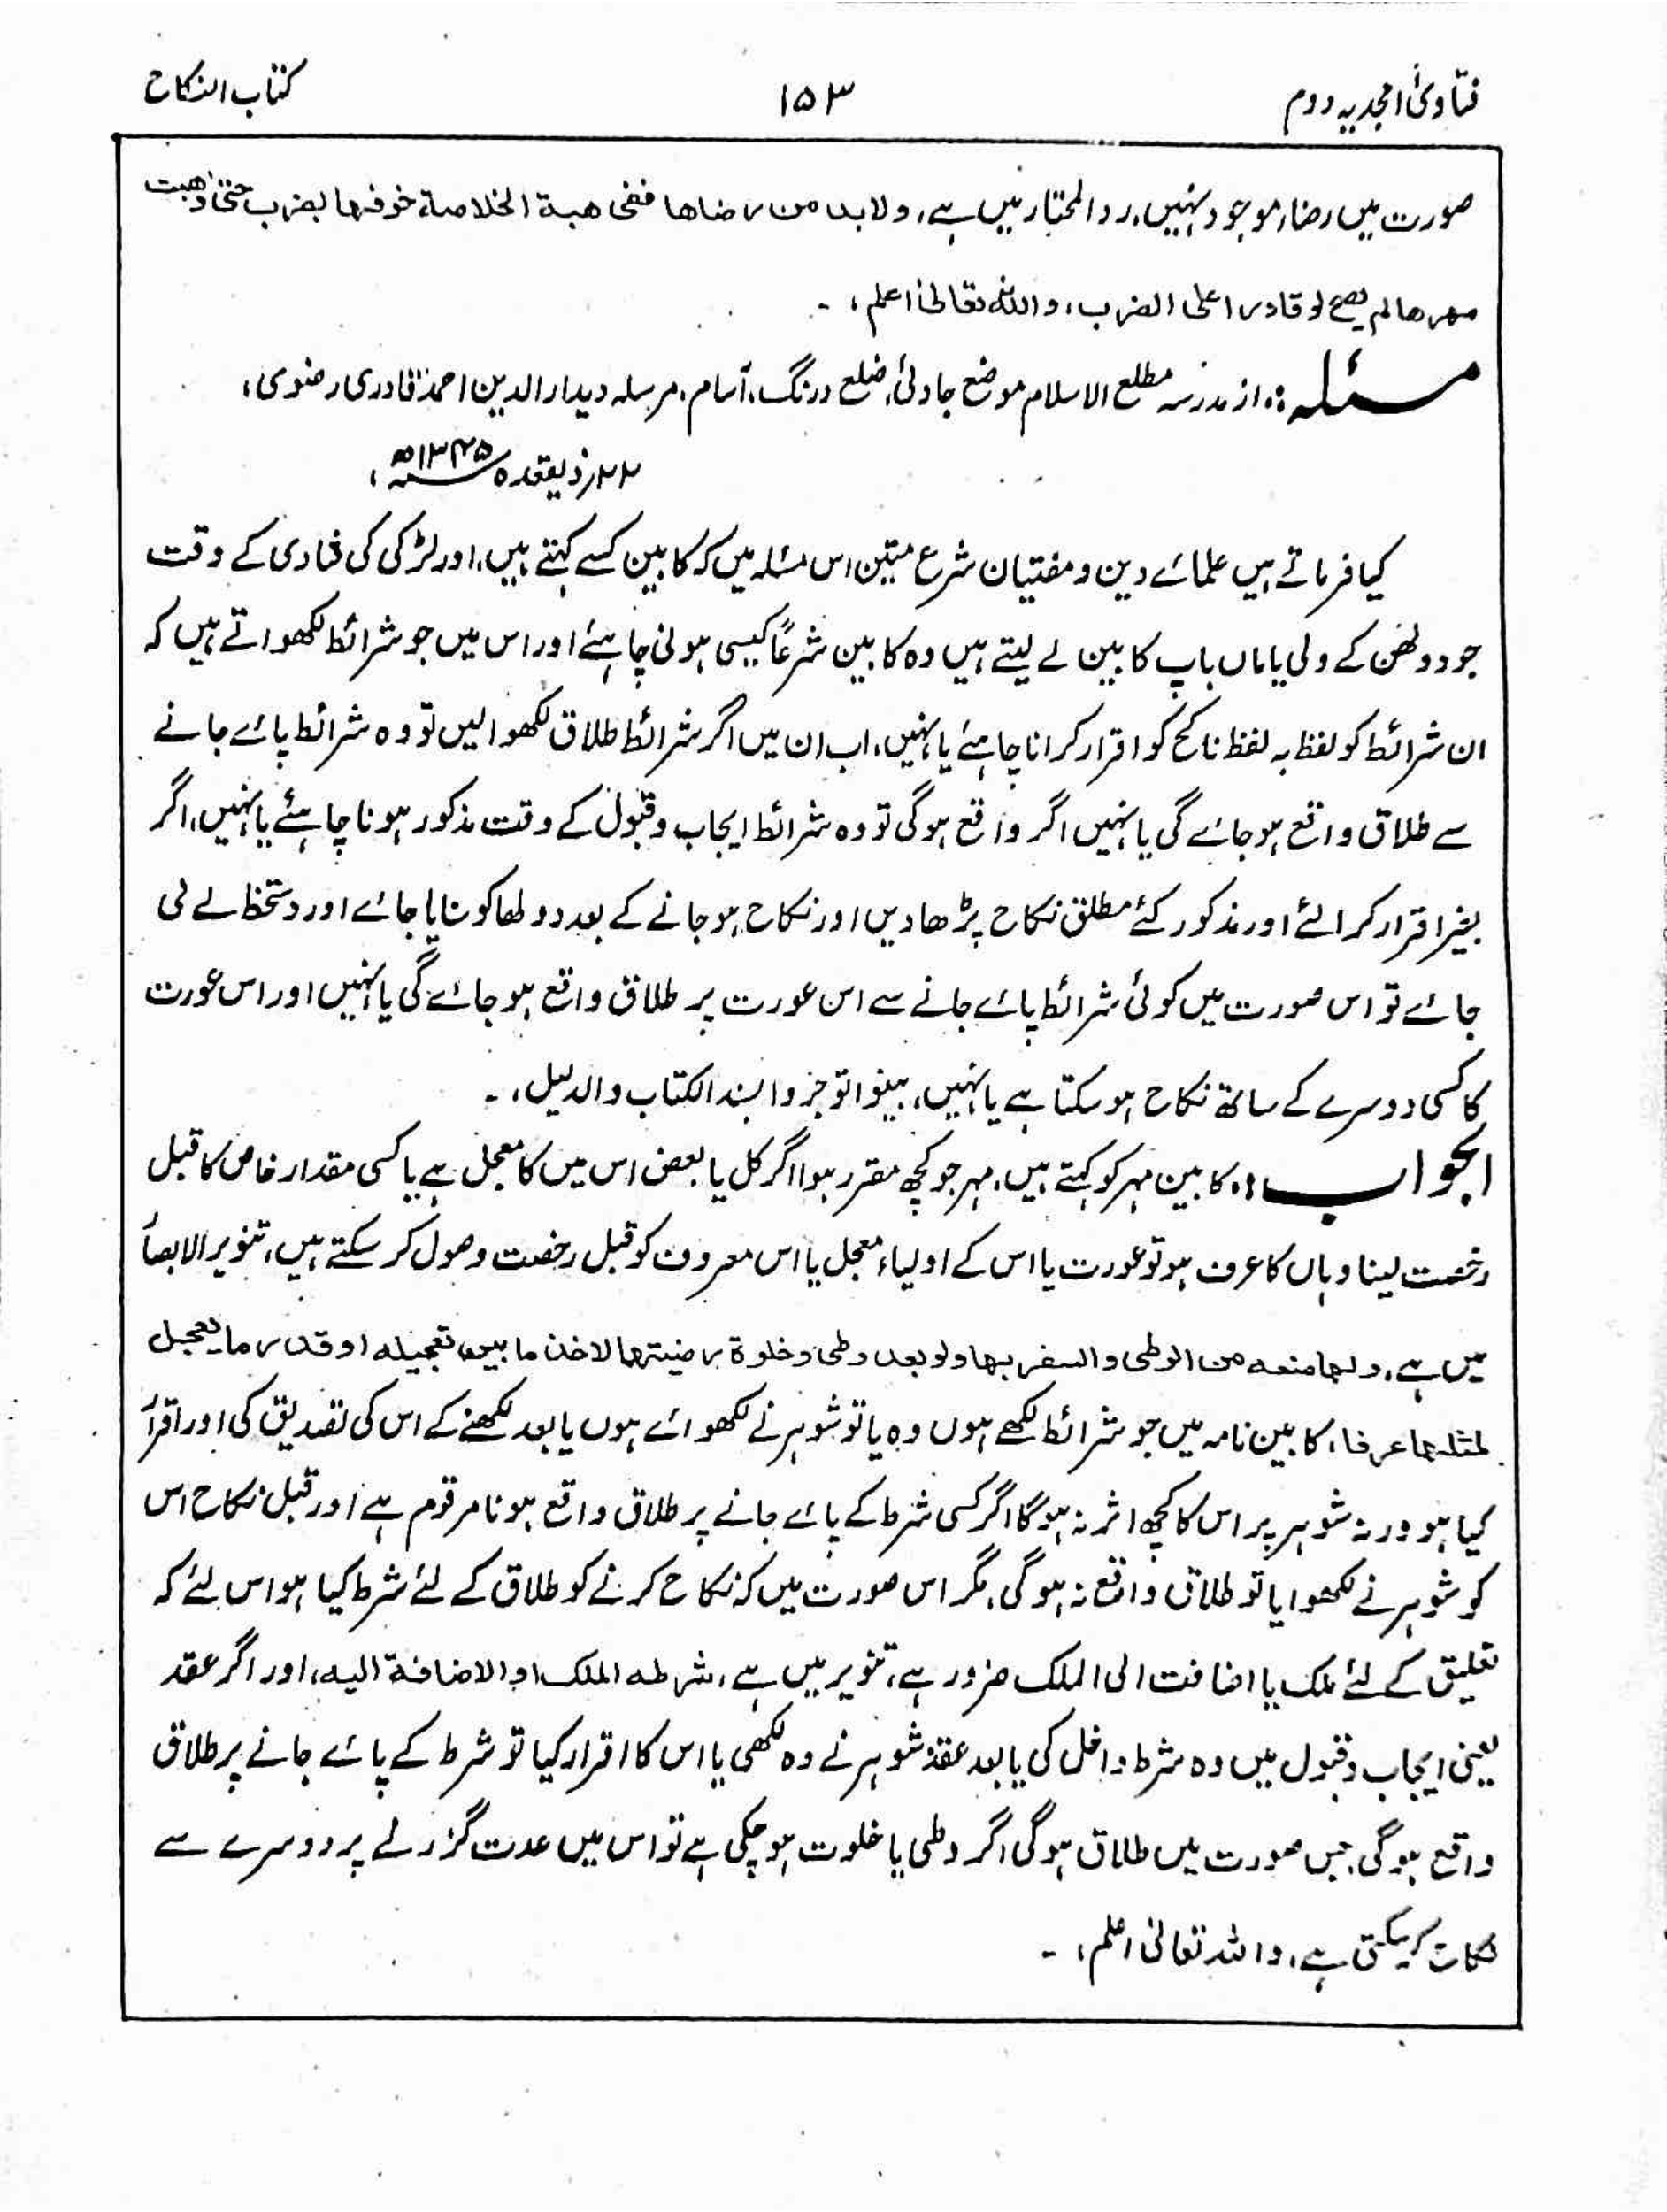 فتاویٰ امجدیہ دوم
۱۵۳
کتاب النکاح
صورت میں رضاء موجود نہیں، رد المحتار میں ہے، ولابد من رضاها ففی هبة الخلاصة خوفها بضرب حتی وهبت
مهرها لم یصح لو قادرا علی الضرب، واللہ تعالیٰ اعلم، ۔
مسئلہ :۔ از مدرسہ مطلع الاسلام موضع جادلی، ضلع درنگ، آسام، مرسلہ دیدار الدین احمد قادری رضوی،
۲۲؍ ذیقعدہ ۱۳۴۵ھ،
کیا فرماتے ہیں علمائے دین و مفتیان شرع متین اس مسئلہ میں کہ کابین کسے کہتے ہیں، اور لڑکی کی شادی کے وقت
جو دولھن کے ولی یا ماں باپ کابین لے لیتے ہیں وہ کابین شرعًا کیسی ہونی چاہئے اور اس میں جو شرائط لکھواتے ہیں کہ
ان شرائط کو لفظ بہ لفظ ناکح کو اقرار کرانا چاہئے یا نہیں، اب ان میں اگر شرائط طلاق لکھوالیں تو وہ شرائط پائے جانے
سے طلاق واقع ہوجائے گی یا نہیں اگر واقع ہوگی تو وہ شرائط ایجاب وقبول کے وقت مذکور ہونا چاہئے یا نہیں، اگر
بغیر اقرار کرائے اور مذکور کئے مطلق نکاح پڑھادیں اور نکاح ہوجانے کے بعد دولھا کو سنایا جائے اور دستخط لے لی
جائے تو اس صورت میں کوئی شرائط پائے جانے سے اس عورت پر طلاق واقع ہوجائے گی یا نہیں اور اس عورت
کا کسی دوسرے کے ساتھ نکاح ہوسکتا ہے یا نہیں، بینوا توجروا بسند الکتاب والدلیل، ۔
الجواب :۔ کابین مہر کو کہتے ہیں، مہر جو کچھ مقرر ہوا اگر کل یا بعض اس میں کا معجل ہے یا کسی مقدار خاص کا قبل
رخصت لینا وہاں کا عرف ہو تو عورت یا اس کے اولیاء معجل یا اس معروف کو قبل رخصت وصول کرسکتے ہیں، تنویر الابصار
میں ہے، ولها منعه من الوطی والسفر بها ولو بعد وطی وخلوة رضیتهما لاخذ ما بین تعجیله او قدر ما یعجل
لمثلها عرفا، کابین نامہ میں جو شرائط لکھے ہوں وہ یا تو شوہر نے لکھوائے ہوں یا بعد لکھنے کے اس کی تصدیق کی اور اقرار
کیا ہو ورنہ شوہر پر اس کا کچھ اثر نہ ہوگا اگر کسی شرط کے پائے جانے پر طلاق واقع ہونا مرقوم ہے اور قبل نکاح اس
کو شوہر نے لکھوایا تو طلاق واقع نہ ہوگی، مگر اس صورت میں کہ نکاح کرنے کو طلاق کے لئے شرط کیا ہو اس لئے کہ
تعلیق کے لئے ملک یا اضافت الی الملک ضرور ہے، تنویر میں ہے، شرطه الملک او الاضافة الیه، اور اگر عقد
یعنی ایجاب وقبول میں وہ شرط داخل کی یا بعد عقد شوہر نے وہ لکھی یا اس کا اقرار کیا تو شرط کے پائے جانے پر طلاق
واقع ہوگی، جس صورت میں طلاق ہوگی اگر وطی یا خلوت ہوچکی ہے تو اس میں عدت گزرنے پر دوسرے سے
نکاح کرسکتی ہے، واللہ تعالیٰ اعلم، ۔